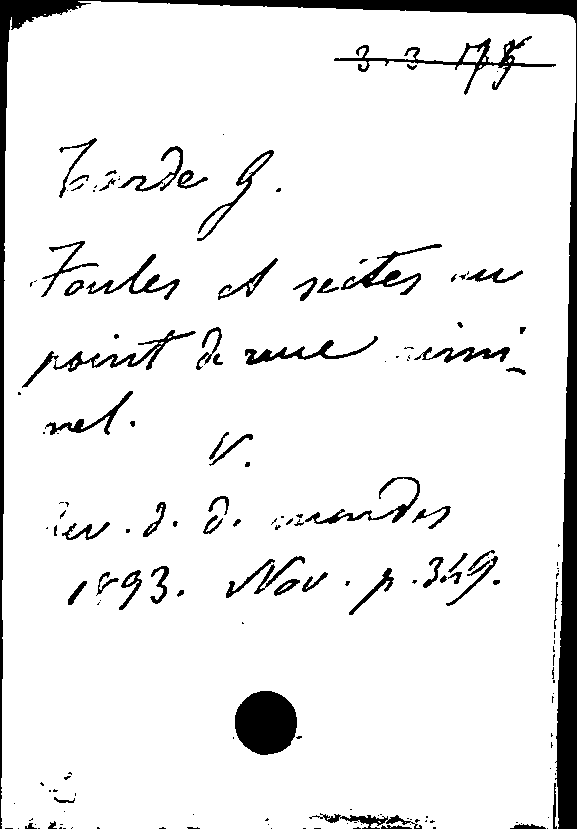 Tarde G.
Foules et sectes au
point de vue crimi-
nel.
V.
Rev. d. d. mondes
1893. Nov. p. 349.